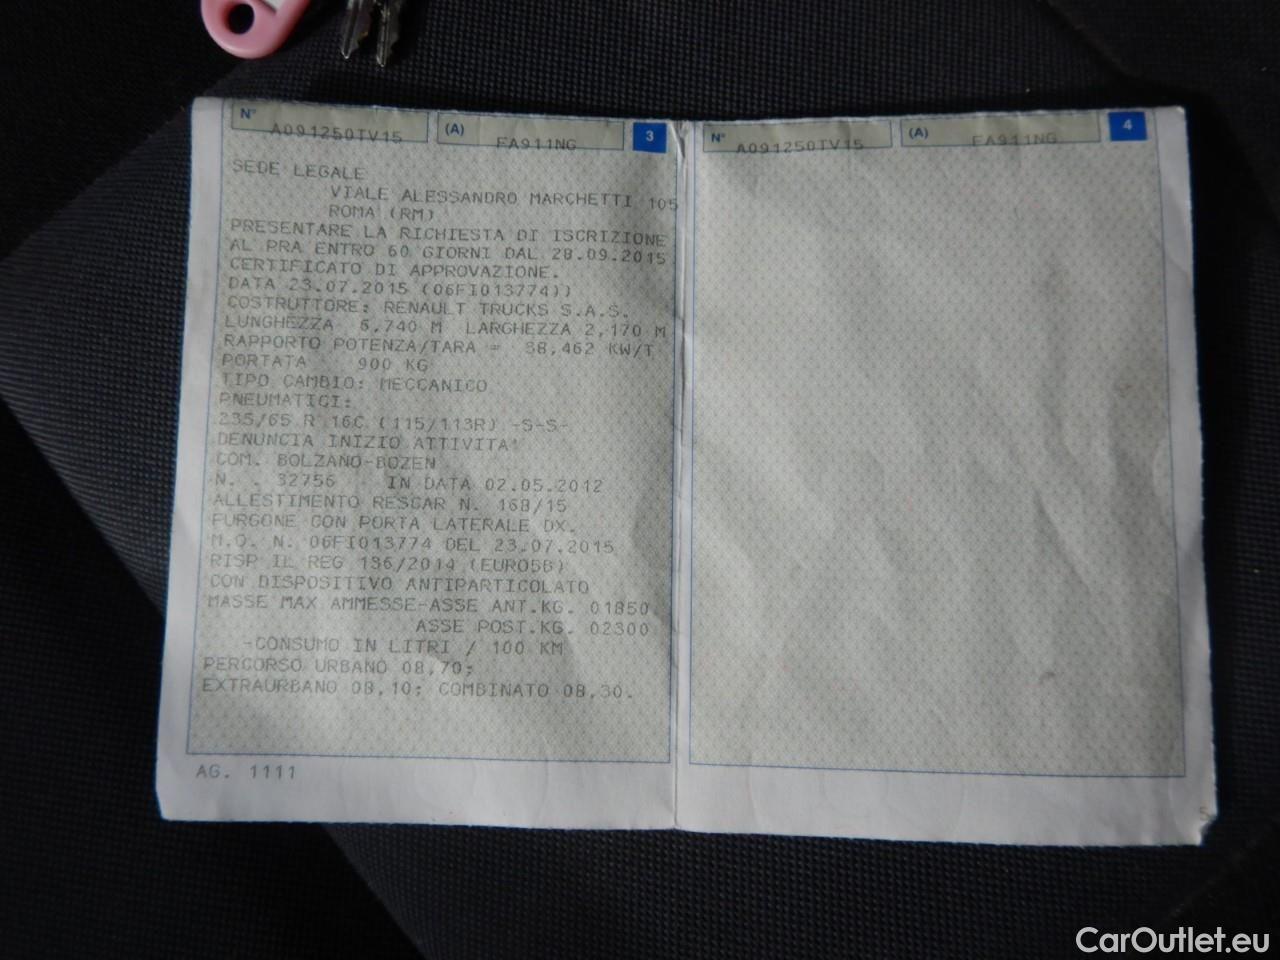 N° A091250TV15 (A) FA911NG 3
SEDE LEGALE
VIALE ALESSANDRO MARCHETTI 105
ROMA (RM)
PRESENTARE LA RICHIESTA DI ISCRIZIONE
AL PRA ENTRO 60 GIORNI DAL 28.09.2015
CERTIFICATO DI APPROVAZIONE.
DATA 23.07.2015 (06FI013774))
COSTRUTTORE: RENAULT TRUCKS S.A.S.
LUNGHEZZA 5,740 M LARGHEZZA 2,170 M
RAPPORTO POTENZA/TARA = 38,462 KW/T
PORTATA 900 KG
TIPO CAMBIO: MECCANICO
PNEUMATICI:
235/65 R 16C (115/113R) -S-S-
DENUNCIA INIZIO ATTIVITA'
COM. BOLZANO-BOZEN
N. . 32756 IN DATA 02.05.2012
ALLESTIMENTO RESCAR N. 168/15
FURGONE CON PORTA LATERALE DX.
M.O. N. 06FI013774 DEL 23.07.2015
RISP IL REG 136/2014 (EURO5B)
CON DISPOSITIVO ANTIPARTICOLATO
MASSE MAX AMMESSE-ASSE ANT.KG. 01850
ASSE POST.KG. 02300
-CONSUMO IN LITRI / 100 KM
PERCORSO URBANO 08,70;
EXTRAURBANO 08,10; COMBINATO 08,30.
AG. 1111
N° A091250TV15 (A) FA911NG 4
CarOutlet.eu